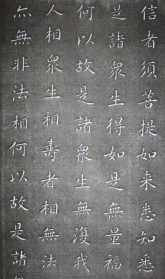 信者須菩提如来悉知悉
是諸眾生得如是無量福
何以故是諸眾生無復我
人相眾生相壽者相無法
亦無非法相何以故是諸